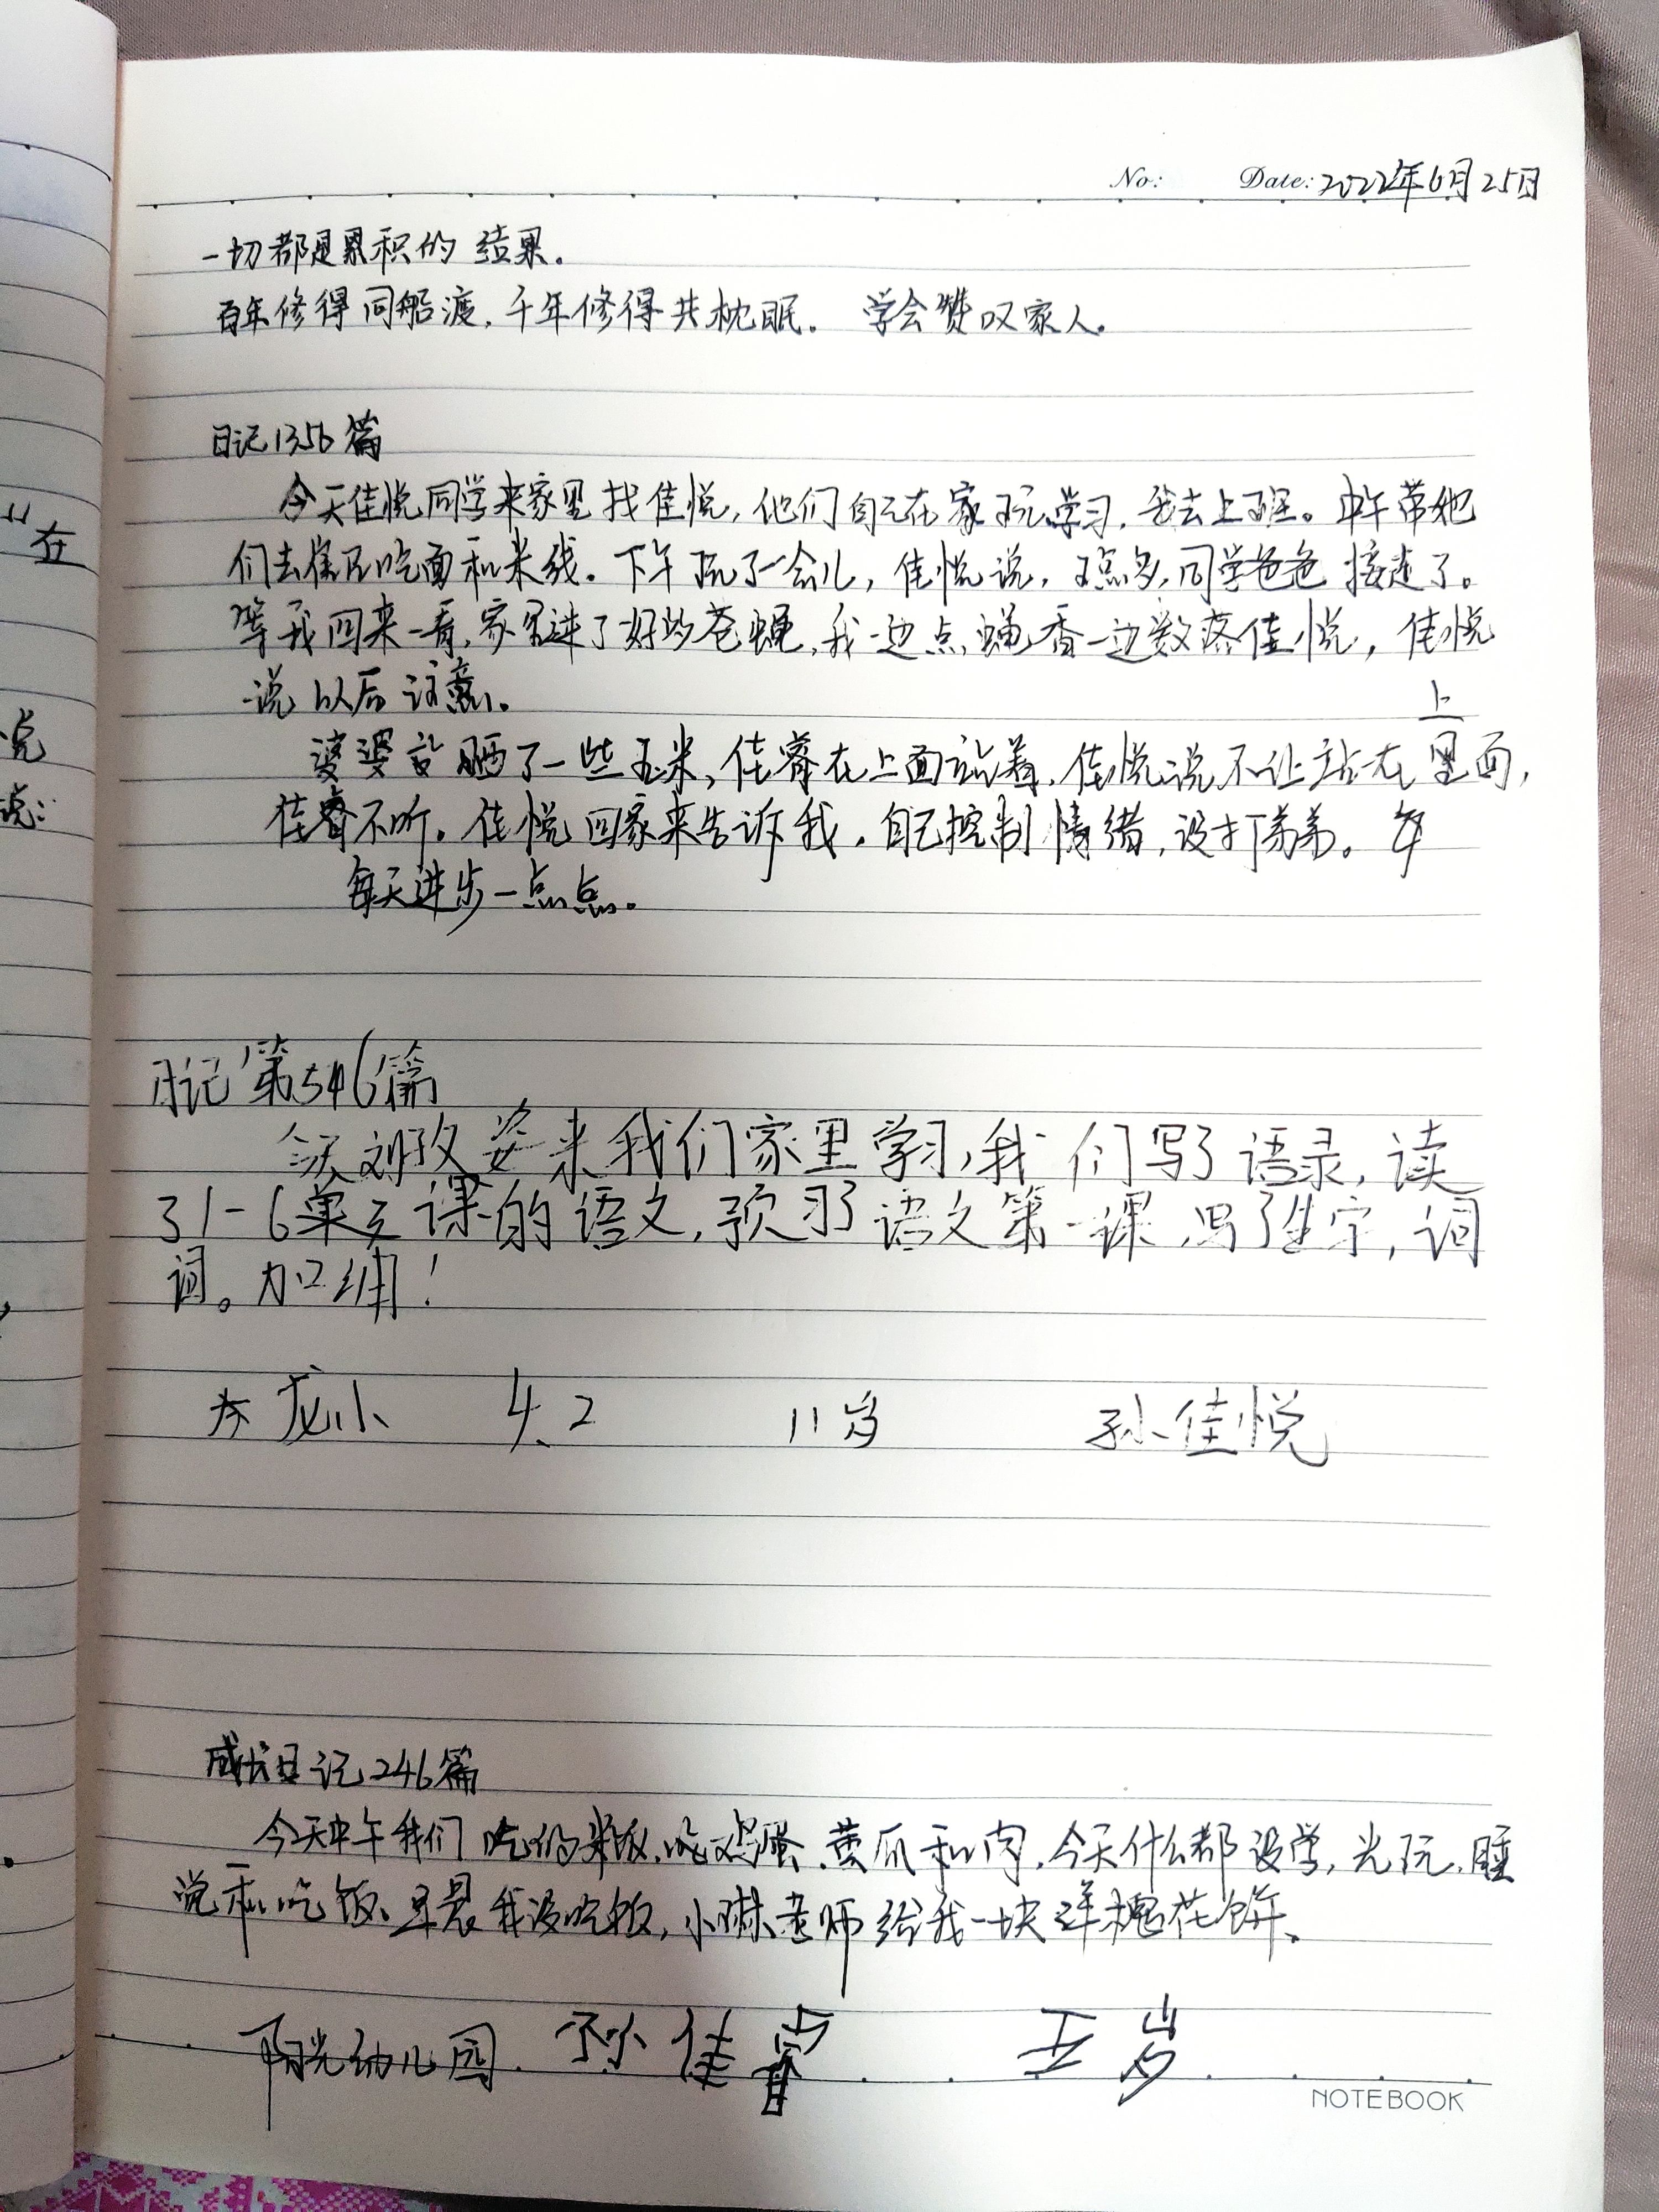 No: Date: 2022年6月25日
一切都是累积的结果.
百年修得同船渡,千年修得共枕眠。学会赞叹家人.
日记1356篇
今天佳悦同学来家里找佳悦,他们自己在家玩学习,我去上班。中午带她
们去吃面和米线.下午玩了一会儿,佳悦说,点多,同学爸爸接走了。
等我回来一看,家里进了好多苍蝇,我一边点蝇香一边数落佳悦,佳悦
说以后注意.
上
婆婆晒了一些玉米,佳睿在上面站着,佳悦说不让站在里面,
佳睿不听.佳悦回家来告诉我,自己控制情绪,没打弟弟。
每天进步一点点.
日记第546篇
今天刘姿来我们家里学习,我们写了语录,读
了1-6单元课的语文,预习了语文第一课,写了生字,词
词。加油!
龙小 4.2 11岁 孙佳悦
成长日记246篇
今天中午我们吃的米饭,吃鸡蛋、黄瓜和肉,今天什么都没学,光玩,睡
觉和吃饭、早晨我没吃饭,小琳老师给我一块洋槐花饼.
阳光幼儿园. 孙佳睿 五岁
NOTEBOOK
在
说
说: